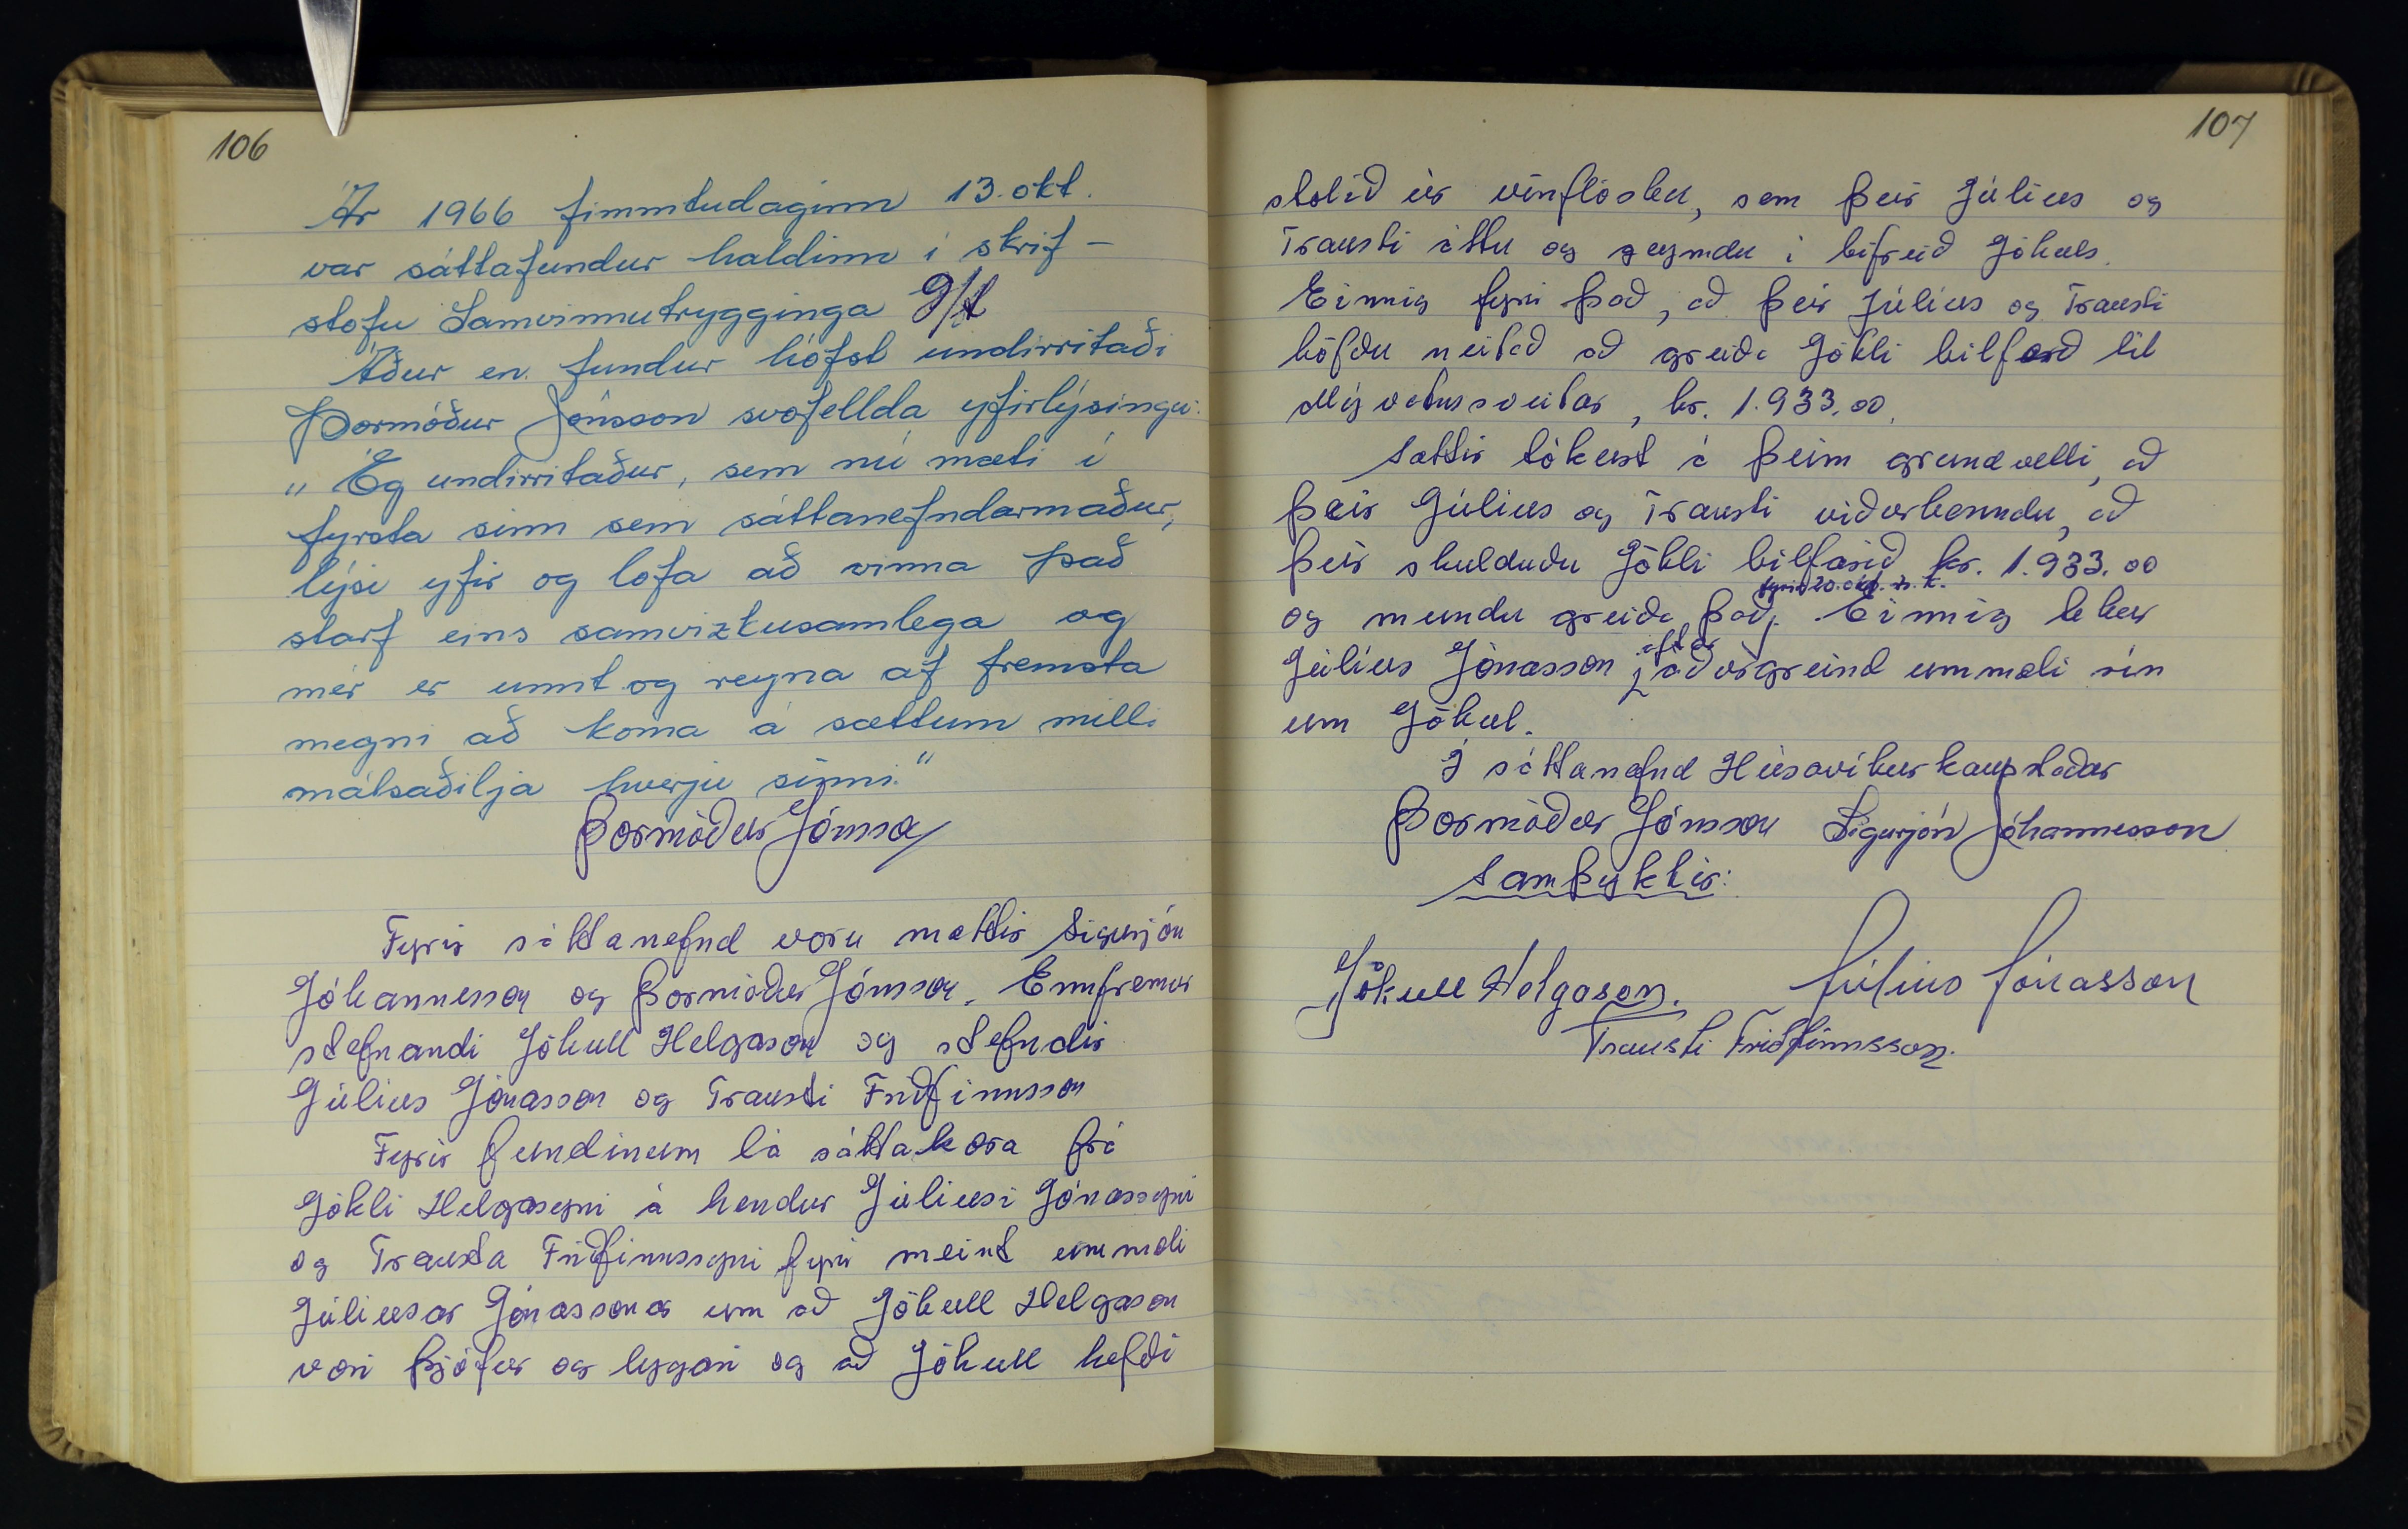 106
Ár 1966 fimmtudaginn 13. okt.
var sáttafundur haldinn í skrif-
stofu Samvinnutrygginga g/t
Áður en fundur hófst undirritaði
Þormóður Jónsson svofellda yfirlýsingu:
„Ég undirritaður, sem nú mæti í
fyrsta sinn sem sáttanefndarmaður,
lýsi yfir og lofa að vinna það
starf eins samvizkusamlega og
mér er unnt og reyna af fremsta
megni að koma á sættum milli
málsaðilja hverju sinni."
Þormóður Jónsson
Fyrir sáttanefnd voru mættir Sigurjón
Jóhannesson og Þormóður Jónsson. Ennfremur
stefnandi Jökull Helgason og stefndir
Júlíus Jónasson og Trausti Friðfinnsson
Fyrir fundinum lá sáttakæra frá
Jökli Helgasyni á hendur Júlíusi Jónassyni
og Trausta Friðfinnssyni fyrir meint ummæli
Júlíusar Jónassonar um að Jökull Helgason
væri þjófur og lygari og að Jökull hefði
107
stolið úr vínflösku, sem þeir Júlíus og
Trausti áttu og geymdu í bifreið Jökuls.
Einnig fyrir það, að þeir Júlíus og Trausti
höfðu neitað að greiða Jökli bílfarið til
Mývatnssveitar, kr. 1.933.00.
Sættir tókust á þeim grundvelli, að
þeir Júlíus og Trausti viðurkenndu, að
þeir skulduðu Jökli bílfarið kr. 1.933.00
fyrir 20. okt. n.k.
og mundu greiða það. Einnig tekur
aftur
Júlíus Jónasson áðurgreind ummæli sín
um Jökul.
Í sáttanefnd Húsavíkurkaupstaðar
Þormóður Jónsson Sigurjón Jóhannesson
Samþykkir:
Jökull Helgason. Júlíus Jónasson
Trausti Friðfinnsson.